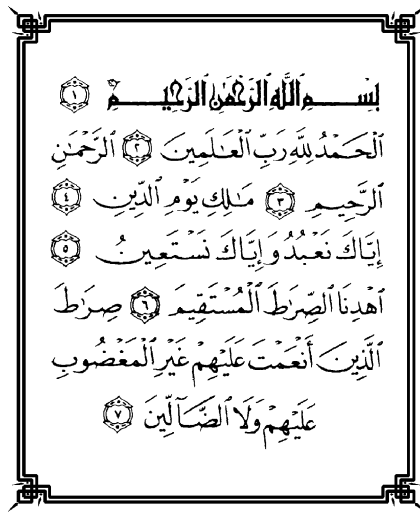 بِسْمِ ٱللَّهِ ٱلرَّحْمَٰنِ ٱلرَّحِيمِ ١
ٱلْحَمْدُ لِلَّهِ رَبِّ ٱلْعَالَمِينَ ٢ ٱلرَّحْمَٰنِ
ٱلرَّحِيمِ ٣ مَالِكِ يَوْمِ ٱلدِّينِ ٤
إِيَّاكَ نَعْبُدُ وَإِيَّاكَ نَسْتَعِينُ ٥
ٱهْدِنَا ٱلصِّرَاطَ ٱلْمُسْتَقِيمَ ٦ صِرَاطَ
ٱلَّذِينَ أَنْعَمْتَ عَلَيْهِمْ غَيْرِ ٱلْمَغْضُوبِ
عَلَيْهِمْ وَلَا ٱلضَّآلِّينَ ٧